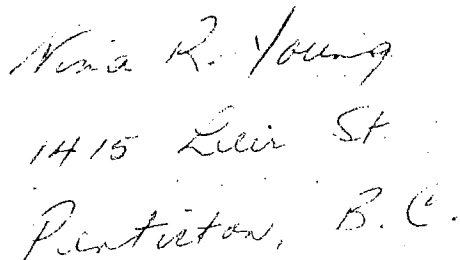 Nina R. Young
1415 Leir St.
Penticton, B.C.